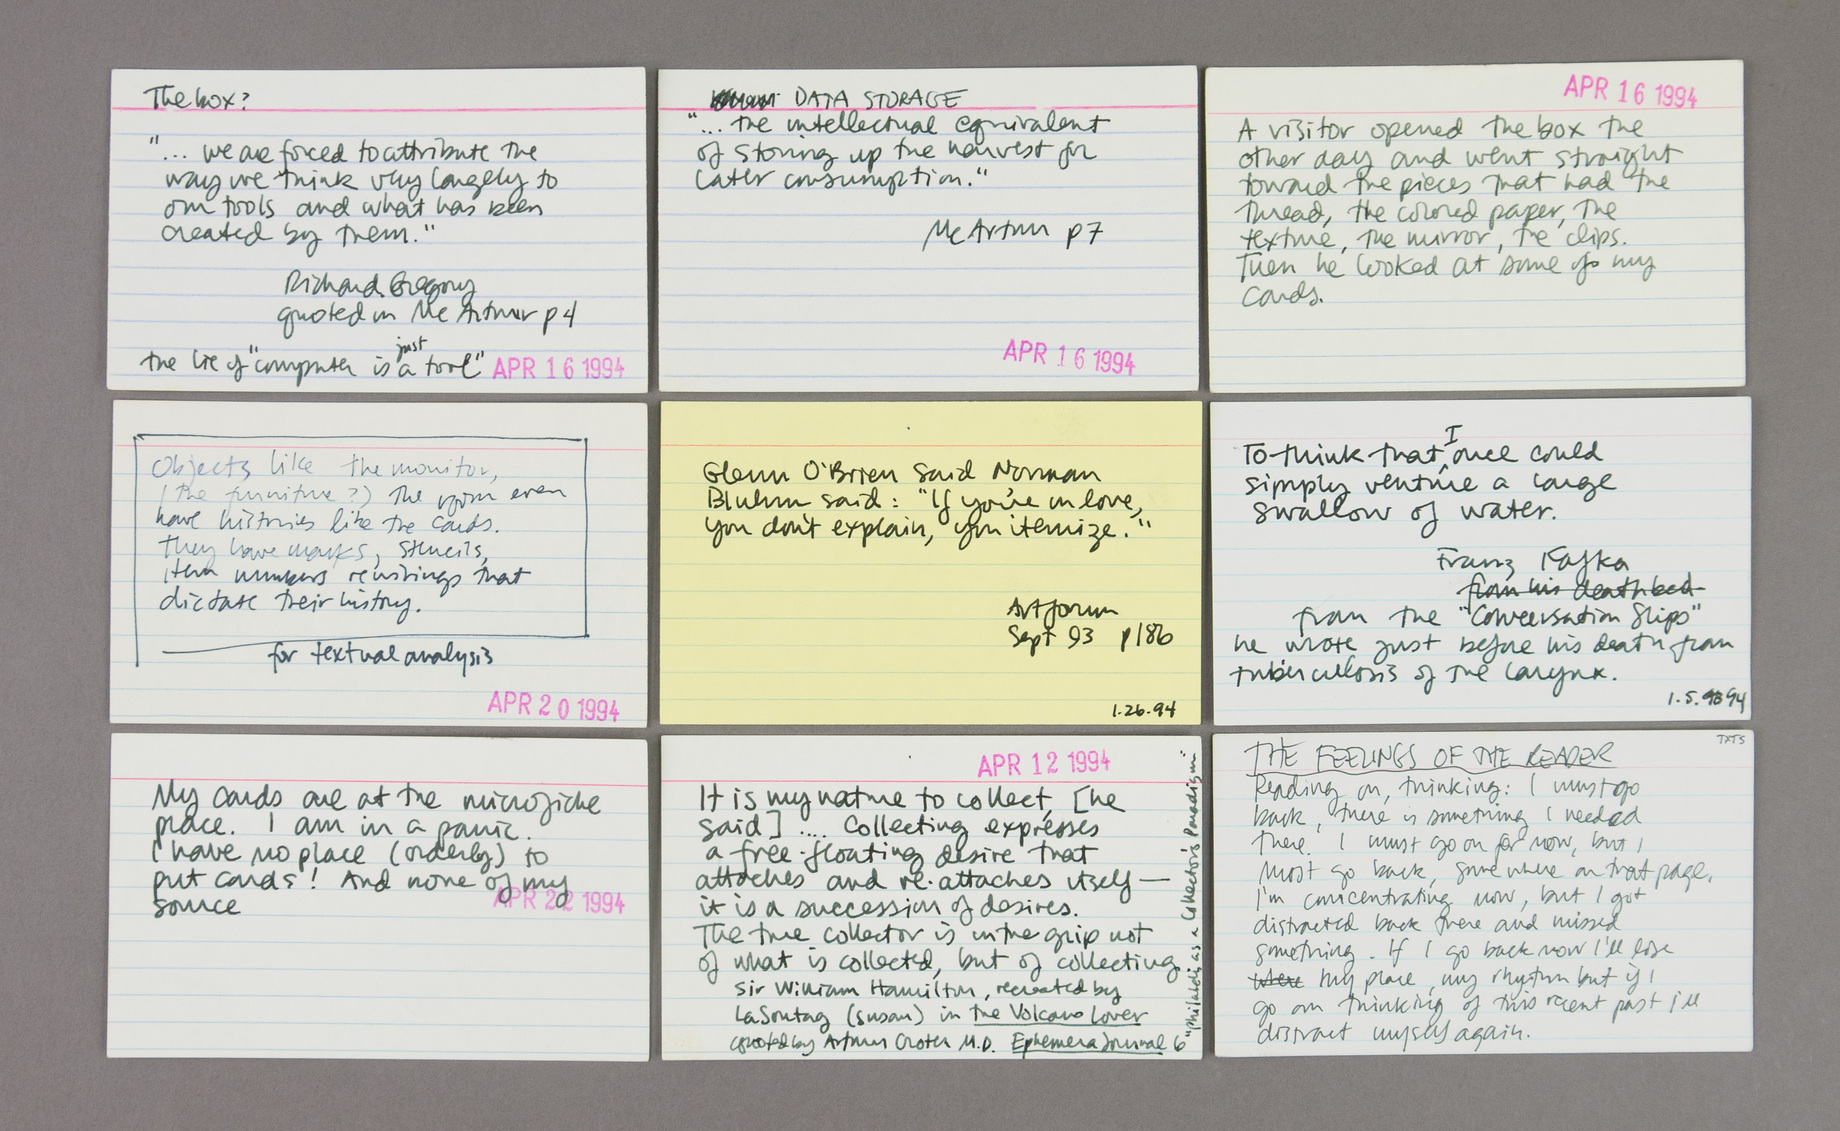 The box?
"... we are forced to attribute the
way we think very largely to
our tools and what has been
created by them."
Richard Gregory
quoted in McArthur p4
just
the lie of "computer is a tool"
APR 16 1994
DATA STORAGE
"... the intellectual equivalent
of storing up the harvest for
later consumption."
McArthur p7
APR 16 1994
APR 16 1994
A visitor opened the box the
other day and went straight
toward the pieces that had the
thread, the colored paper, the
texture, the mirror, the clips.
Then he looked at some of my
cards.
Objects like the monitor,
(the furniture?) the room even
have histories like the cards.
They have marks, stencils,
item numbers rewritings that
dictate their history.
for textual analysis
APR 20 1994
Glenn O'Brien said Norman
Bluhm said: "If you're in love,
you don't explain, you itemize."
Artforum
Sept 93 p186
1.26.94
I
To think that once could
simply venture a large
swallow of water.
Franz Kafka
from his deathbed
from the "Conversation Slips"
he wrote just before his death from
tuberculosis of the larynx.
1.5.93 94
My cards are at the microfiche
place. I am in a panic.
I have no place (orderly) to
put cards! And none of my
source
APR 22 1994
APR 12 1994
It is my nature to collect, [he
said] .... Collecting expresses
a free-floating desire that
attaches and re-attaches itself —
it is a succession of desires.
The true collector is in the grip not
of what is collected, but of collecting
Sir William Hamilton, recreated by
LaSontag (Susan) in the Volcano Lover
quoted by Arthur Croteh M.D. Ephemera Journal 6
"Philately as a Collector's Paradigm"
TXTS
THE FEELINGS OF THE READER
Reading on, thinking: I must go
back, there is something I needed
there. I must go on for now, but I
must go back, somewhere on that page.
I'm concentrating now, but I got
distracted back there and missed
something. If I go back now I'll lose
where my place, my rhythm but if I
go on thinking of this recent past I'll
distract myself again.